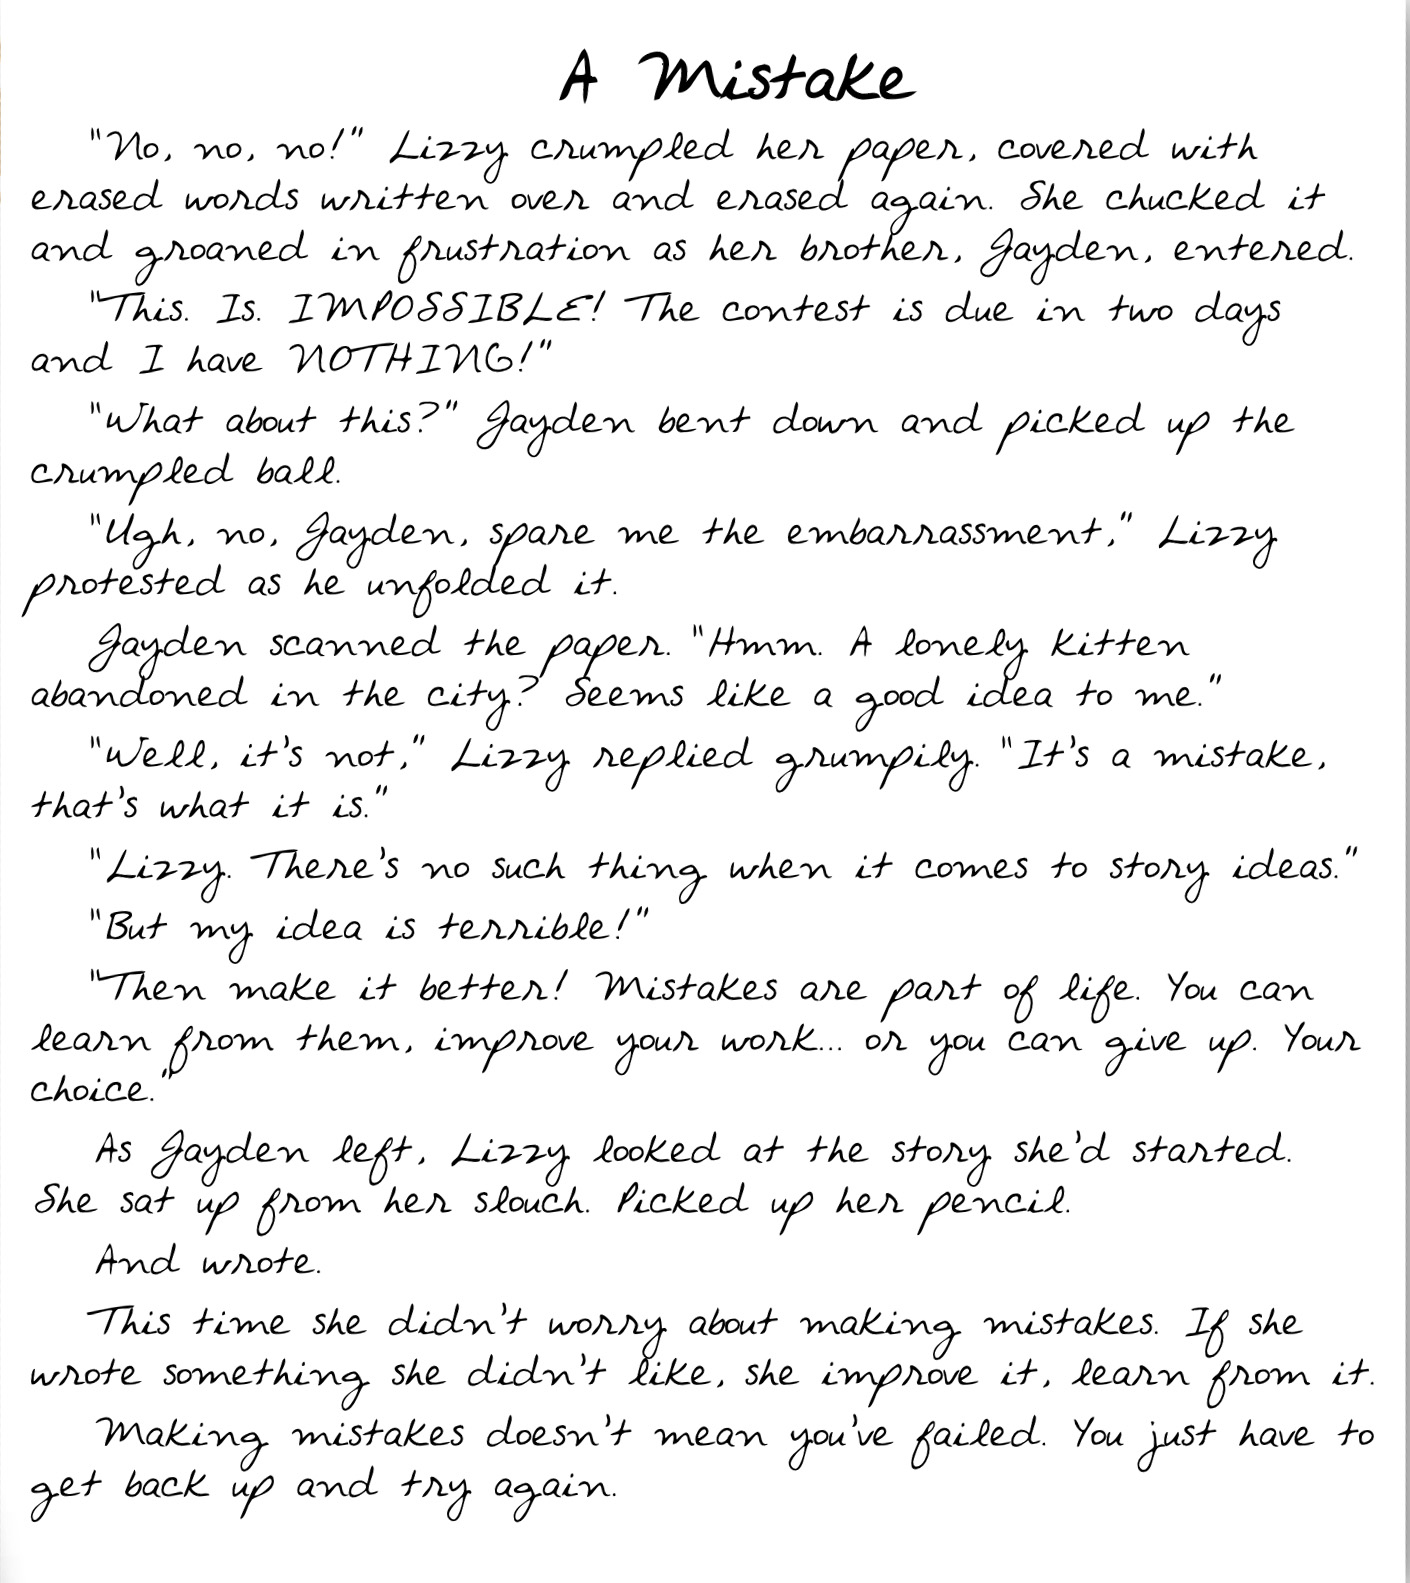 A Mistake
"No, no, no!" Lizzy crumpled her paper, covered with
erased words written over and erased again. She chucked it
and groaned in frustration as her brother, Jayden, entered.
"This. Is. IMPOSSIBLE! The contest is due in two days
and I have NOTHING!"
"What about this?" Jayden bent down and picked up the
crumpled ball.
"Ugh, no, Jayden, spare me the embarrassment," Lizzy
protested as he unfolded it.
Jayden scanned the paper. "Hmm. A lonely kitten
abandoned in the city? Seems like a good idea to me."
"Well, it's not," Lizzy replied grumpily. "It's a mistake,
that's what it is."
"Lizzy. There's no such thing when it comes to story ideas."
"But my idea is terrible!"
"Then make it better! Mistakes are part of life. You can
learn from them, improve your work... or you can give up. Your
choice."
As Jayden left, Lizzy looked at the story she'd started.
She sat up from her slouch. Picked up her pencil.
And wrote.
This time she didn't worry about making mistakes. If she
wrote something she didn't like, she improve it, learn from it.
Making mistakes doesn't mean you've failed. You just have to
get back up and try again.